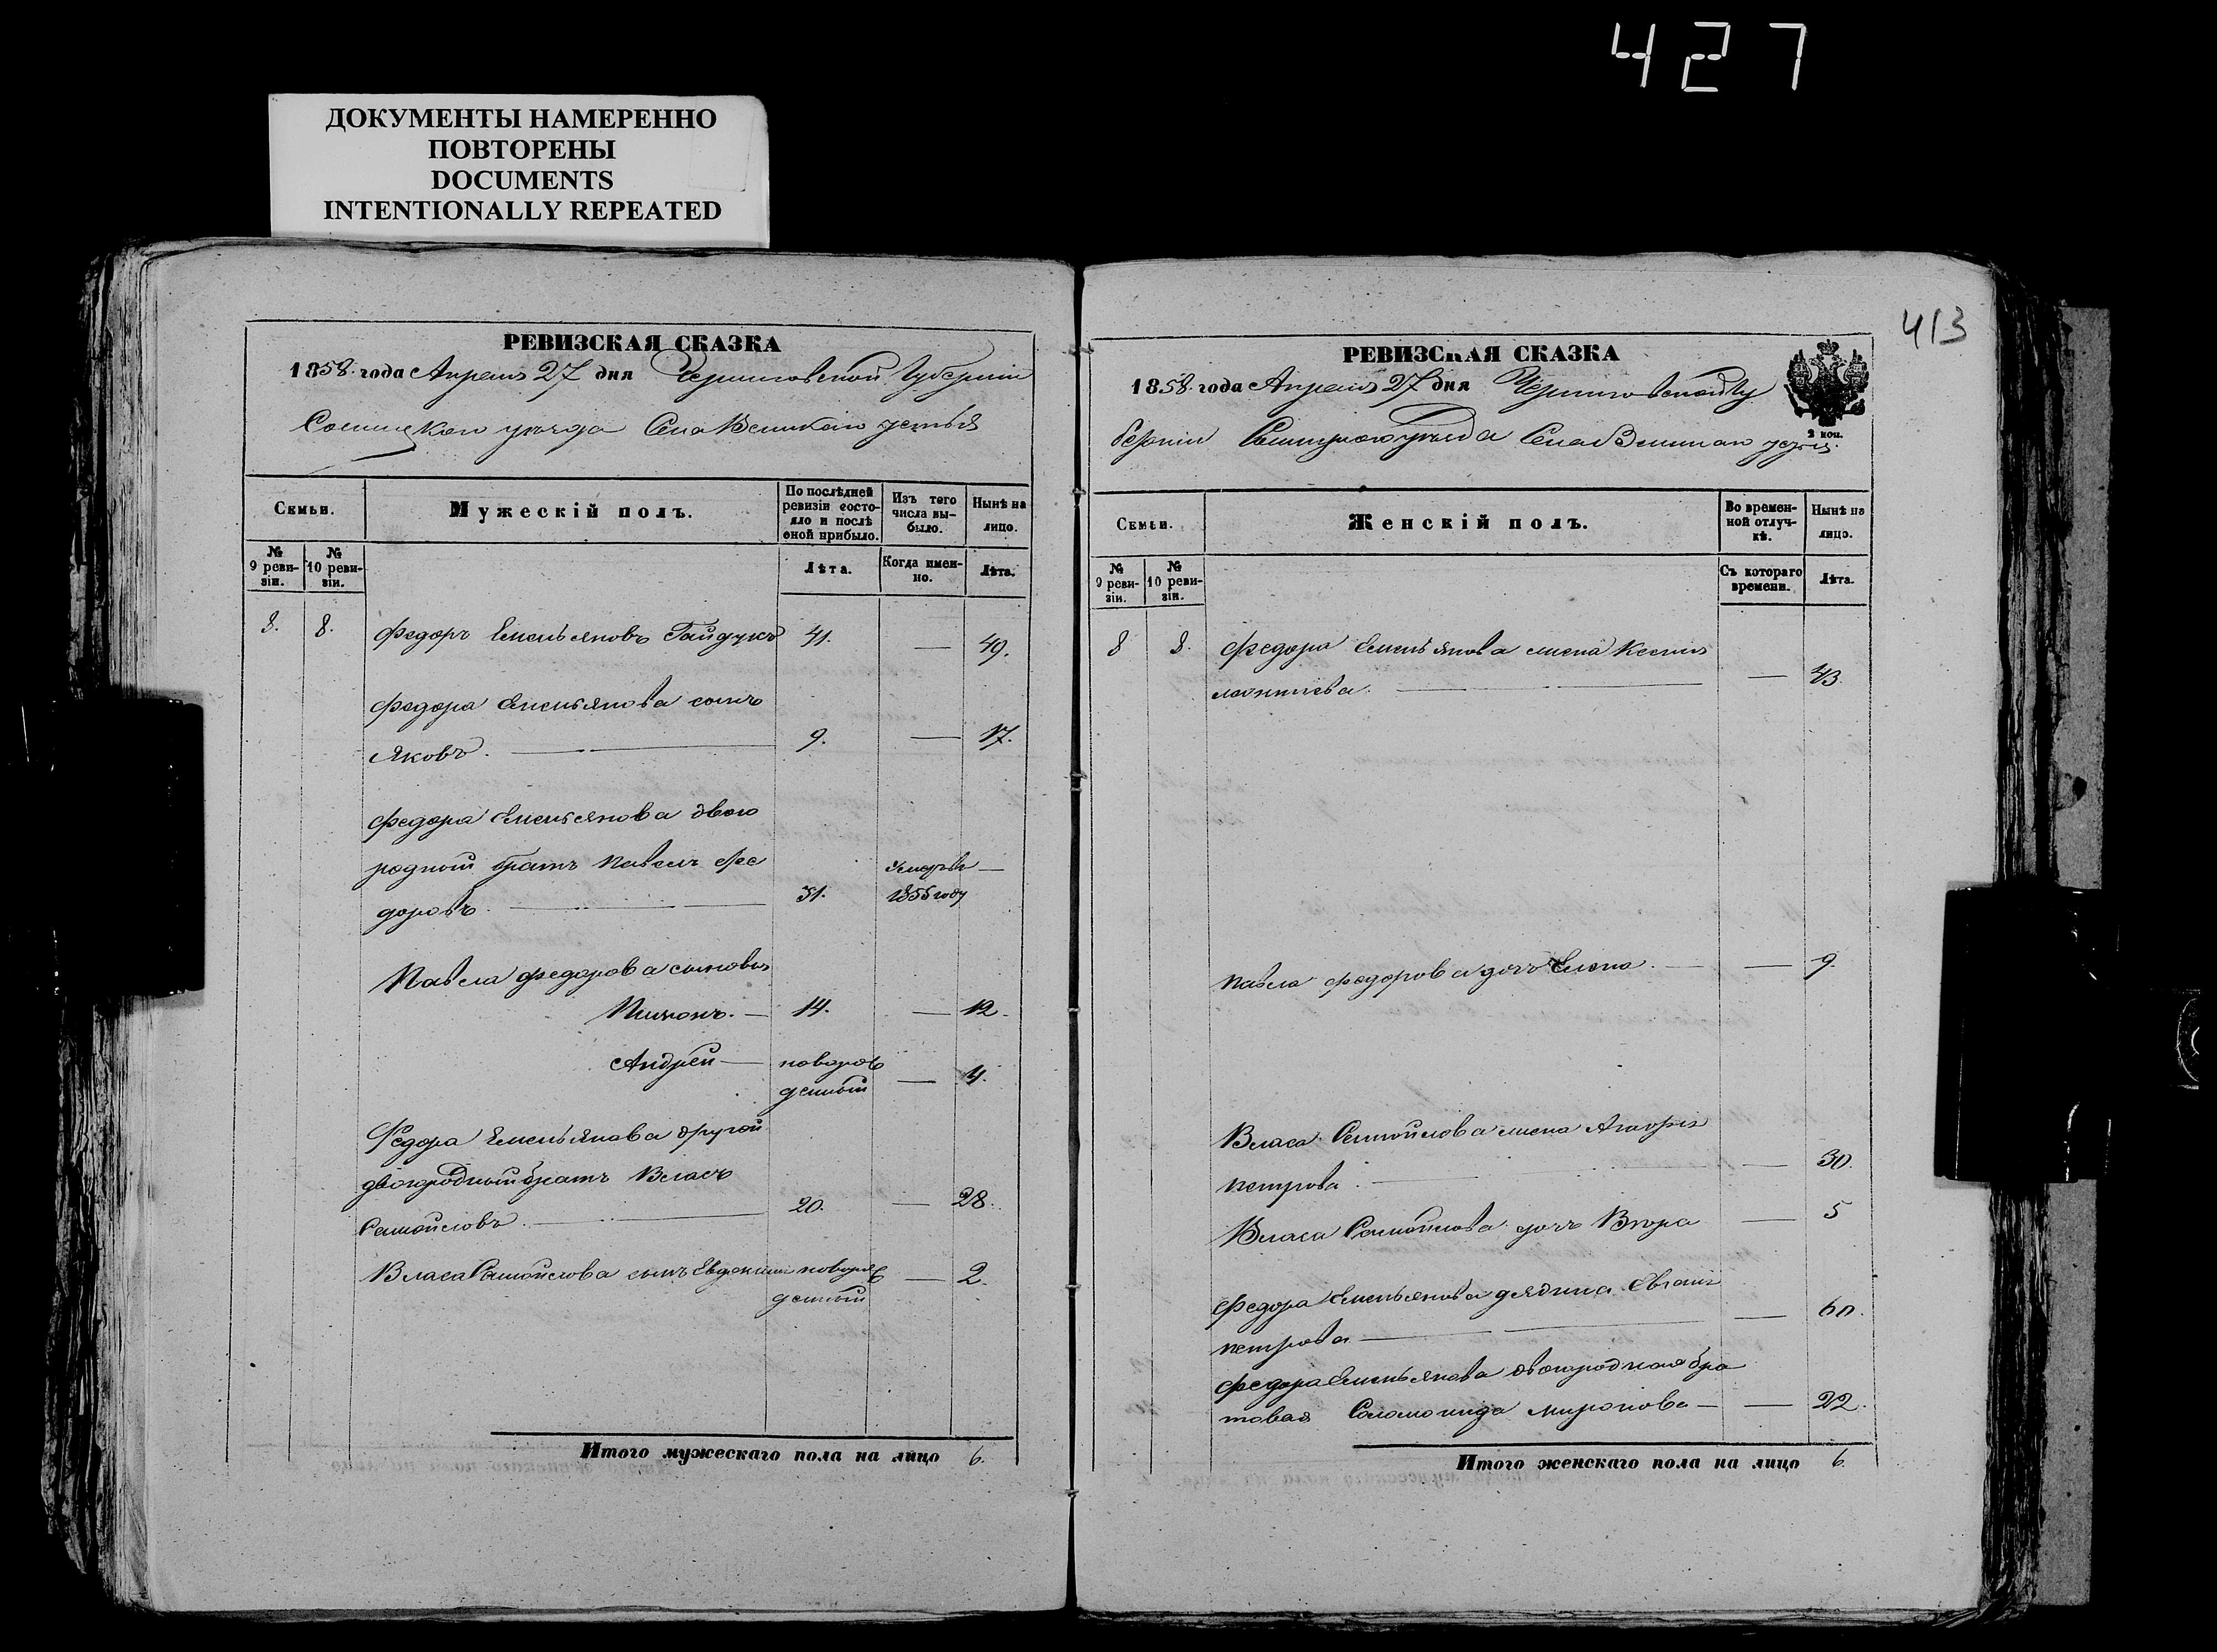 427
ДОКУМЕНТЫ НАМЕРЕННО
ПОВТОРЕНЫ
DOCUMENTS
INTENTIONALLY REPEATED
РЕВИЗСКАЯ СКАЗКА
1858. года Апреля 27 дня Черниговской Губернии
Сосницкого уезда Села Великого устья
Семьи.
Мужескій полъ.
По послѣдней ревизіи состояло и послѣ оной прибыло.
Изъ того числа выбыло.
Нынѣ на лицо.
№ 9 ревизіи.
№ 10 ревизіи.
Лѣта.
Когда именно.
Лѣта.
8. 8. Федоръ Емельяновъ Гайдукъ 41. — 49.
Федора Емельянова сынъ
Яковъ. 9. — 17.
Федора Емельянова двою
родный братъ Павелъ Фе
доровъ. 31. Умеръ въ 1855 году
Павла Федорова сыновья
14. — 12.
Андрей — новорож
денный — 4.
Федора Емельянова другой
двоюродный братъ Власъ
Самойловъ. 20. — 28.
Власа Самойлова сынъ новорож
денный — 2.
Итого мужескаго пола на лицо 6.
413
РЕВИЗСКАЯ СКАЗКА
1858. года Апреля 27 дня Черниговской Гу
берніи Сосницкого уезда Села Великого устья.
2 коп.
Семьи.
Женскій полъ.
Во временной отлучкѣ.
Нынѣ на лицо.
№ 9 ревизіи.
№ 10 ревизіи.
Съ котораго времени.
Лѣта.
8 8. Федора Емельянова жена Ксенія
леонтиева. — 43.
Павла Федорова дочь Елена. — 9.
Власа Самойлова жена
петрова. — 30.
Власа Самойлова дочь — 5
Федора Емельянова дядина
петрова — 60.
Федора Емельянова двоюродная бра
товая Соломонида миронова — 22.
Итого женскаго пола на лицо 6.